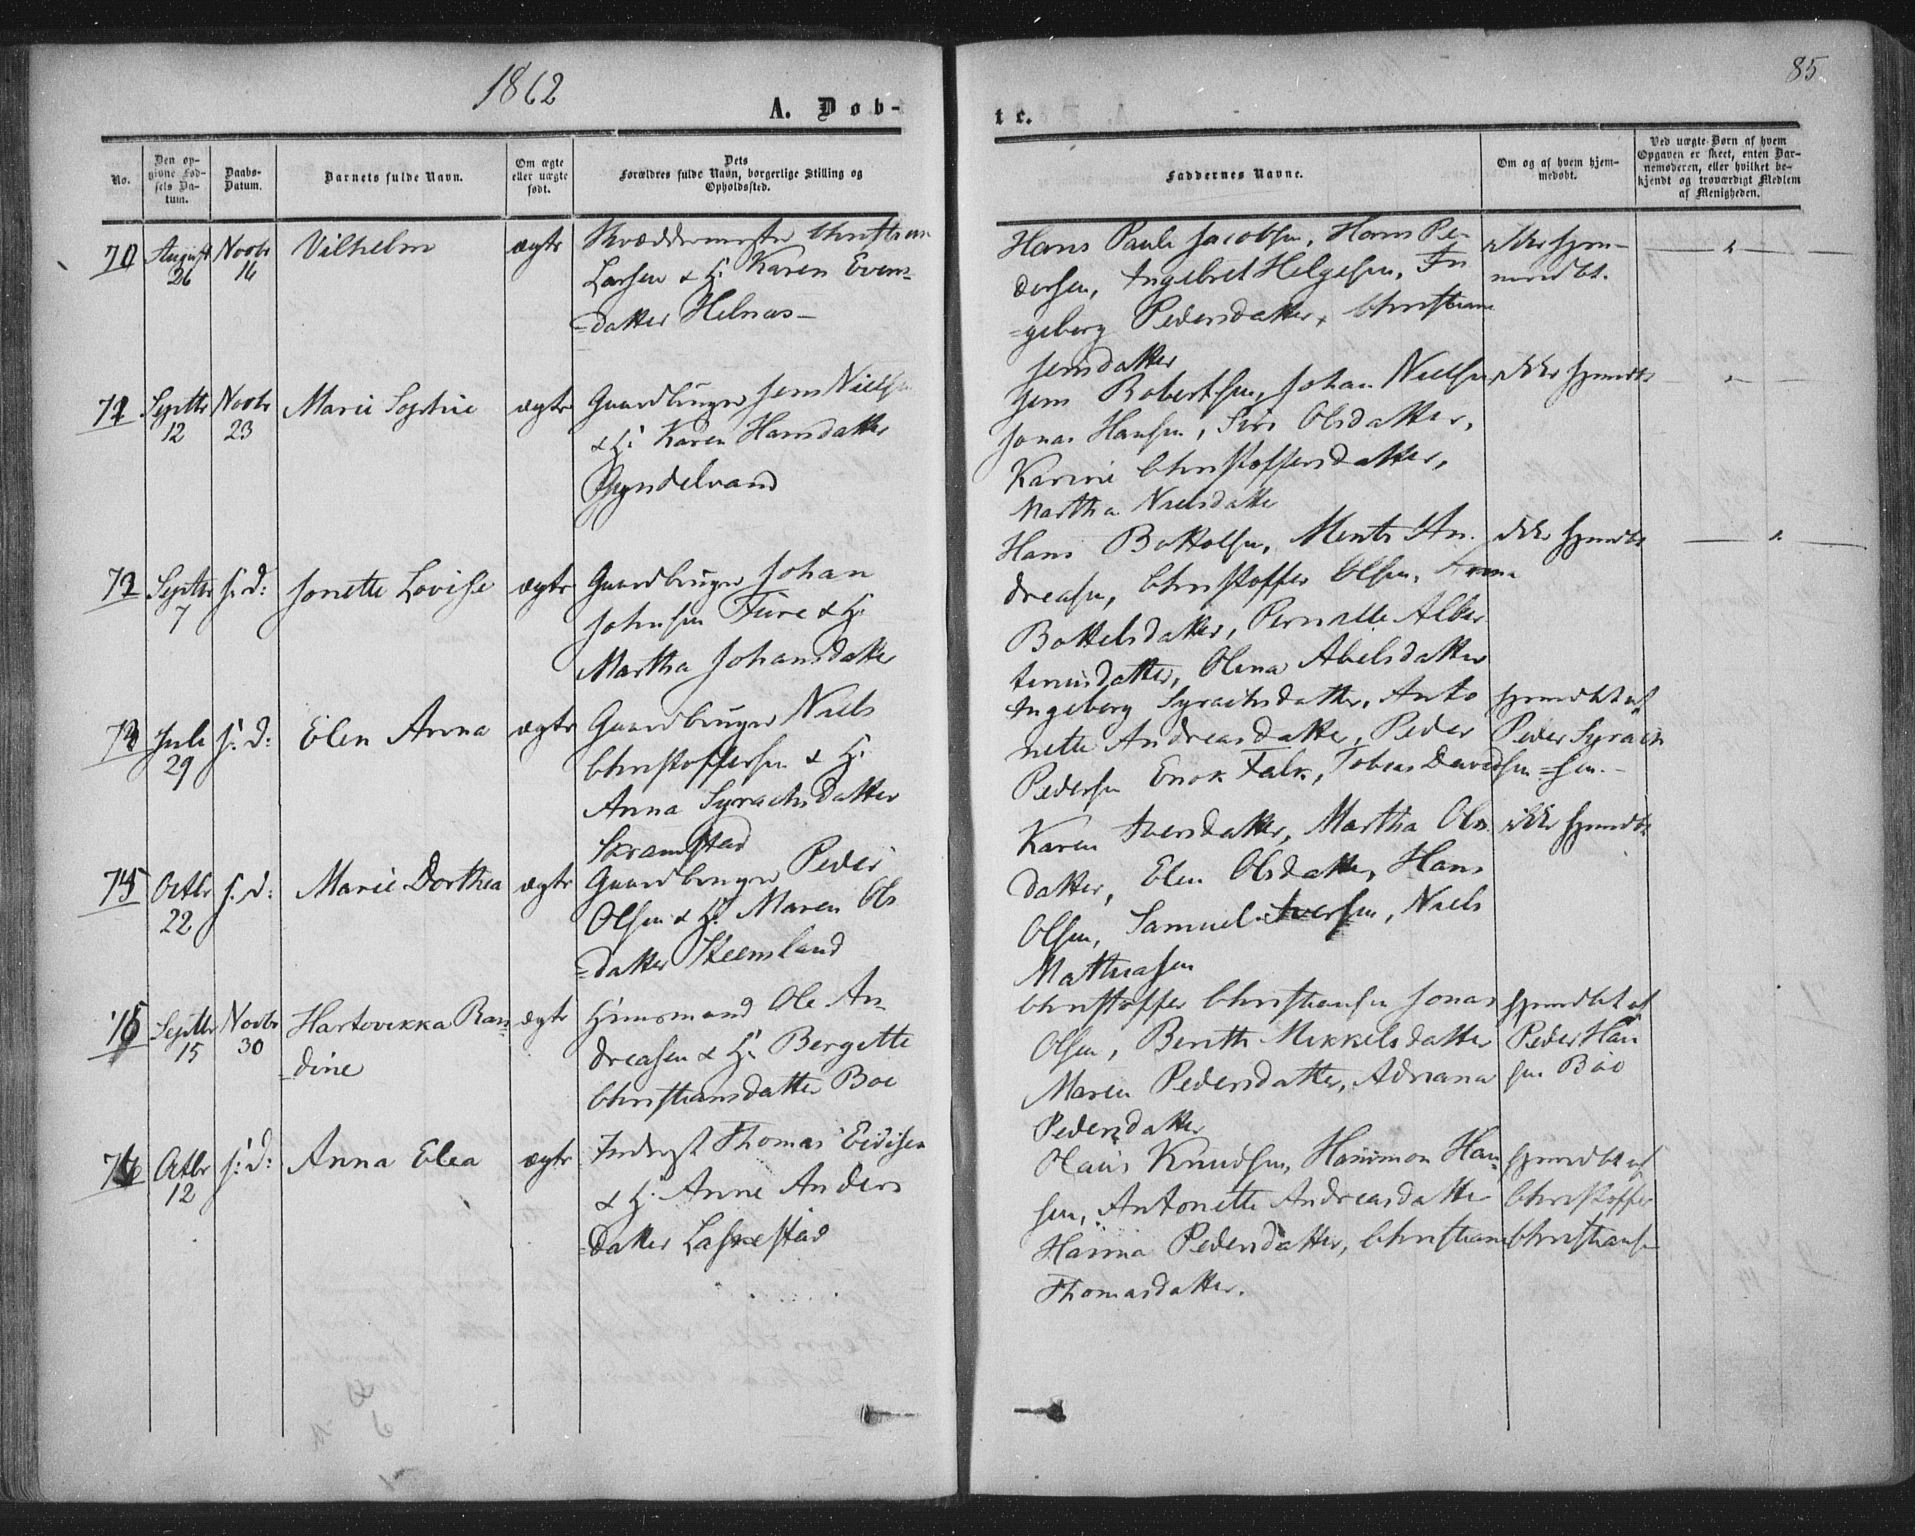 1862
A. Døb-
te.
85
No.
Den op-
givne Fød-
sels Da-
tum.
Daabs-
Datum.
Barnets fulde Navn.
Om ægte
eller uægte
født.
Dets
Forældres fulde Navn, borgerlige Stilling og
Opholdssted.
Faddernes Navne.
Om og af hvem hjem-
medøbt.
Ved uægte Børn af hvem
Opgaven er skeet, enten Bar-
nemoderen, eller hvilket be-
kjendt og troværdigt Medlem
af Menigheden.
70 August 26 Novbr 16 Vilhelm ægte
Skræddermester Christian
Larsen & H. Karen Evens-
=datter Helnæs-
Hans Paule Jacobsen, Hans Pe-
dersen, Ingebret Helgesen, In
=geborg Pedersdatter, Christiane
Jensdatter
ikke hjem-
medbt.
71 Septbr 12 Novbr 23 Marie Sophie ægte
Gaardbruger Jens Niels
& H. Karen Hansdatter
Jens Robertsen, Johan Nielsen
Jonas Hansen, Siri Olsdatter,
Karine Christoffersdatter,
Martha Nielsdatter
ikke hjemdbt
Septbr 7 s: d: Jonette Lovise ægte
Gaardbruger Johan
Johnsen Fure & H.
Martha Johansdatter
Hans Bottolsen, Mentz An
dreasen, Christoffer Olsen, Anna
Bottelsdatter, Pernille Alber
tinusdatter, Olena Abelsdatter
ikke hjemdbt
Juli 29 s: d: Elen Anna ægte
Gaardbruger Niels
Christoffersen & H.
Anna Syrachsdatter
Skramstad
Ingeborg Syrachsdatter, Anto
nette Andreasdatter, Peder
Pedersen Enok Falk, Tobias Davidsen
hjemdbt af
Peder Syrach
=sen.-
Octbr 22 s: d: Marie Dorthea ægte
Gaardbruger Peder
Olsen & H. Maren Ols
=datter Steensland
Karen Iversdatter, Martha Ols
datter, Elen Olsdatter, Hans
Olsen, Samuel Iversen, Niels
Mathiasen
ikke hjemdbt
Septbr 15 Novbr 30 Hartvikka Ran
=dine ægte
Huusmand Ole An
dreasen & H. Bergette
Christiansdatter Boe
Christoffer Christiansen Jonas
Olsen, Berith Mikkelsdatter
Maren Pedersdatter, Adriana
Pedersdatter
hjemdbt af
Peder Han
sen Böe
Octbr 12 s: d: Anna Elea ægte
Inderst Thomas Eidisen
& H. Anne Anders
=datter Laskestad
Olaus Knudsen, Hansmon Han
sen, Antonette Andreasdatter
Hanna Pedersdatter, Christiane
Thomasdatter.
hjemdbt af
Christoffer
Christiansen